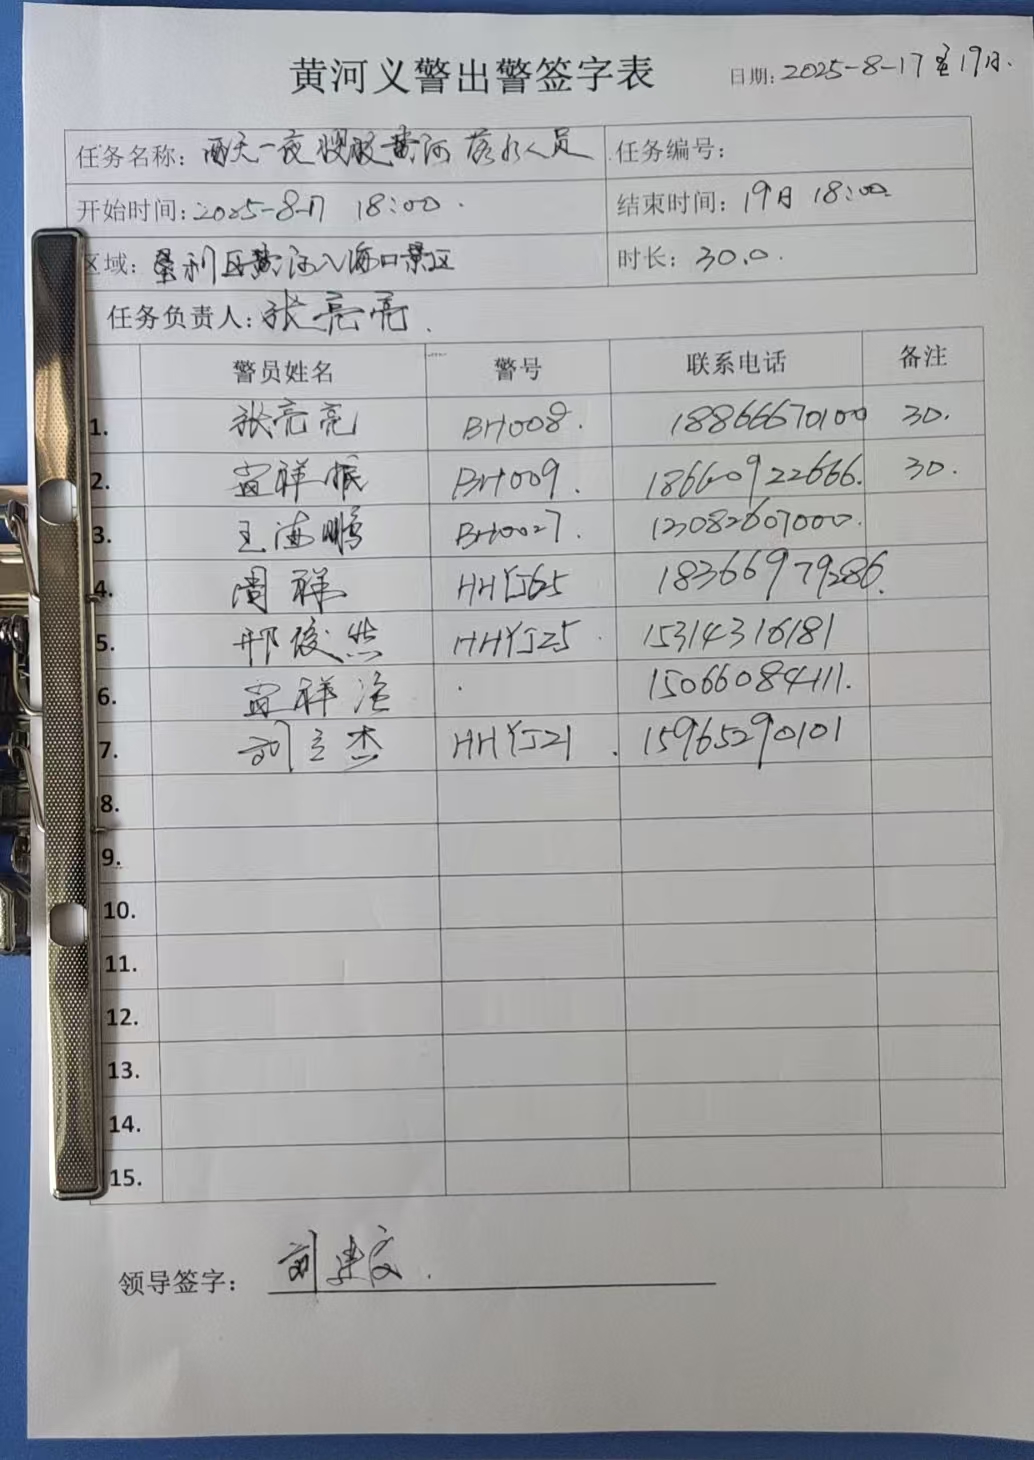 黄河义警出警签字表
日期: 2025-8-17至19日.
任务名称: 两天一夜搜救黄河落水人员 任务编号:
开始时间: 2025-8-17 18:00. 结束时间: 19日 18:00
区域: 垦利区黄河入海口景区 时长: 30.0.
任务负责人: 张亮亮.
警员姓名 警号 联系电话 备注
1. 张亮亮 BH008. 18866670100 30.
2. 祥振 BH009. 18660922666. 30.
3. 王海鹏 BH0027.
4. 周祥 HHYJ65 18366979286.
5. 邢俊然 HHYJ25. 15314316181
6. 祥 15066084111.
7. 刘立杰 HHYJ21. 15965290101
8.
9.
10.
11.
12.
13.
14.
15.
领导签字: 刘建文.